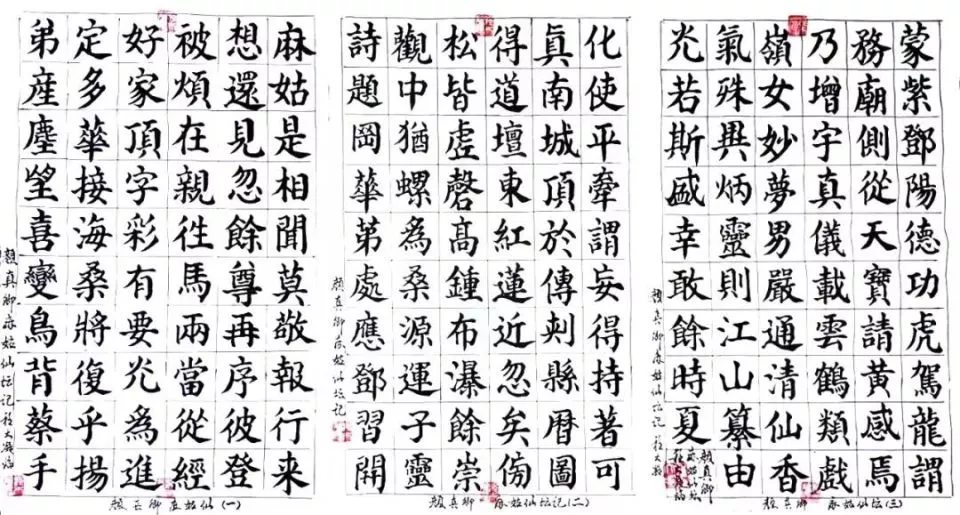 麻姑是相聞莫敬報行来
想還見忽餘尊再序彼登
被煩在親往馬兩當從經
好家頂字彩有要光為進
定多華接海桑將復乎揚
弟産塵望喜變鳥背蔡手
顏真卿麻姑仙坛记
顏真卿麻姑仙(一)
化使平牽謂妄得持著可
真南城頂於傳刾縣曆圖
得道壇東紅蓮近忽矣傍
松皆虚磬髙鍾布瀑餘崇
觀中猶螺為桑源運子靈
詩題岡華第處應鄧習開
顏真卿麻姑仙坛记
顏真卿麻姑仙坛记(二)
蒙紫鄧陽德功虎駕龍謂
務廟側從天寶請黃感焉
乃增宇真儀載雲鶴類戲
嶺女妙夢男嚴通清仙香
氣殊異炳靈則江山纂由
光若斯盛幸敢餘時夏
顏真卿麻姑仙坛记
顏真卿麻姑仙坛(三)